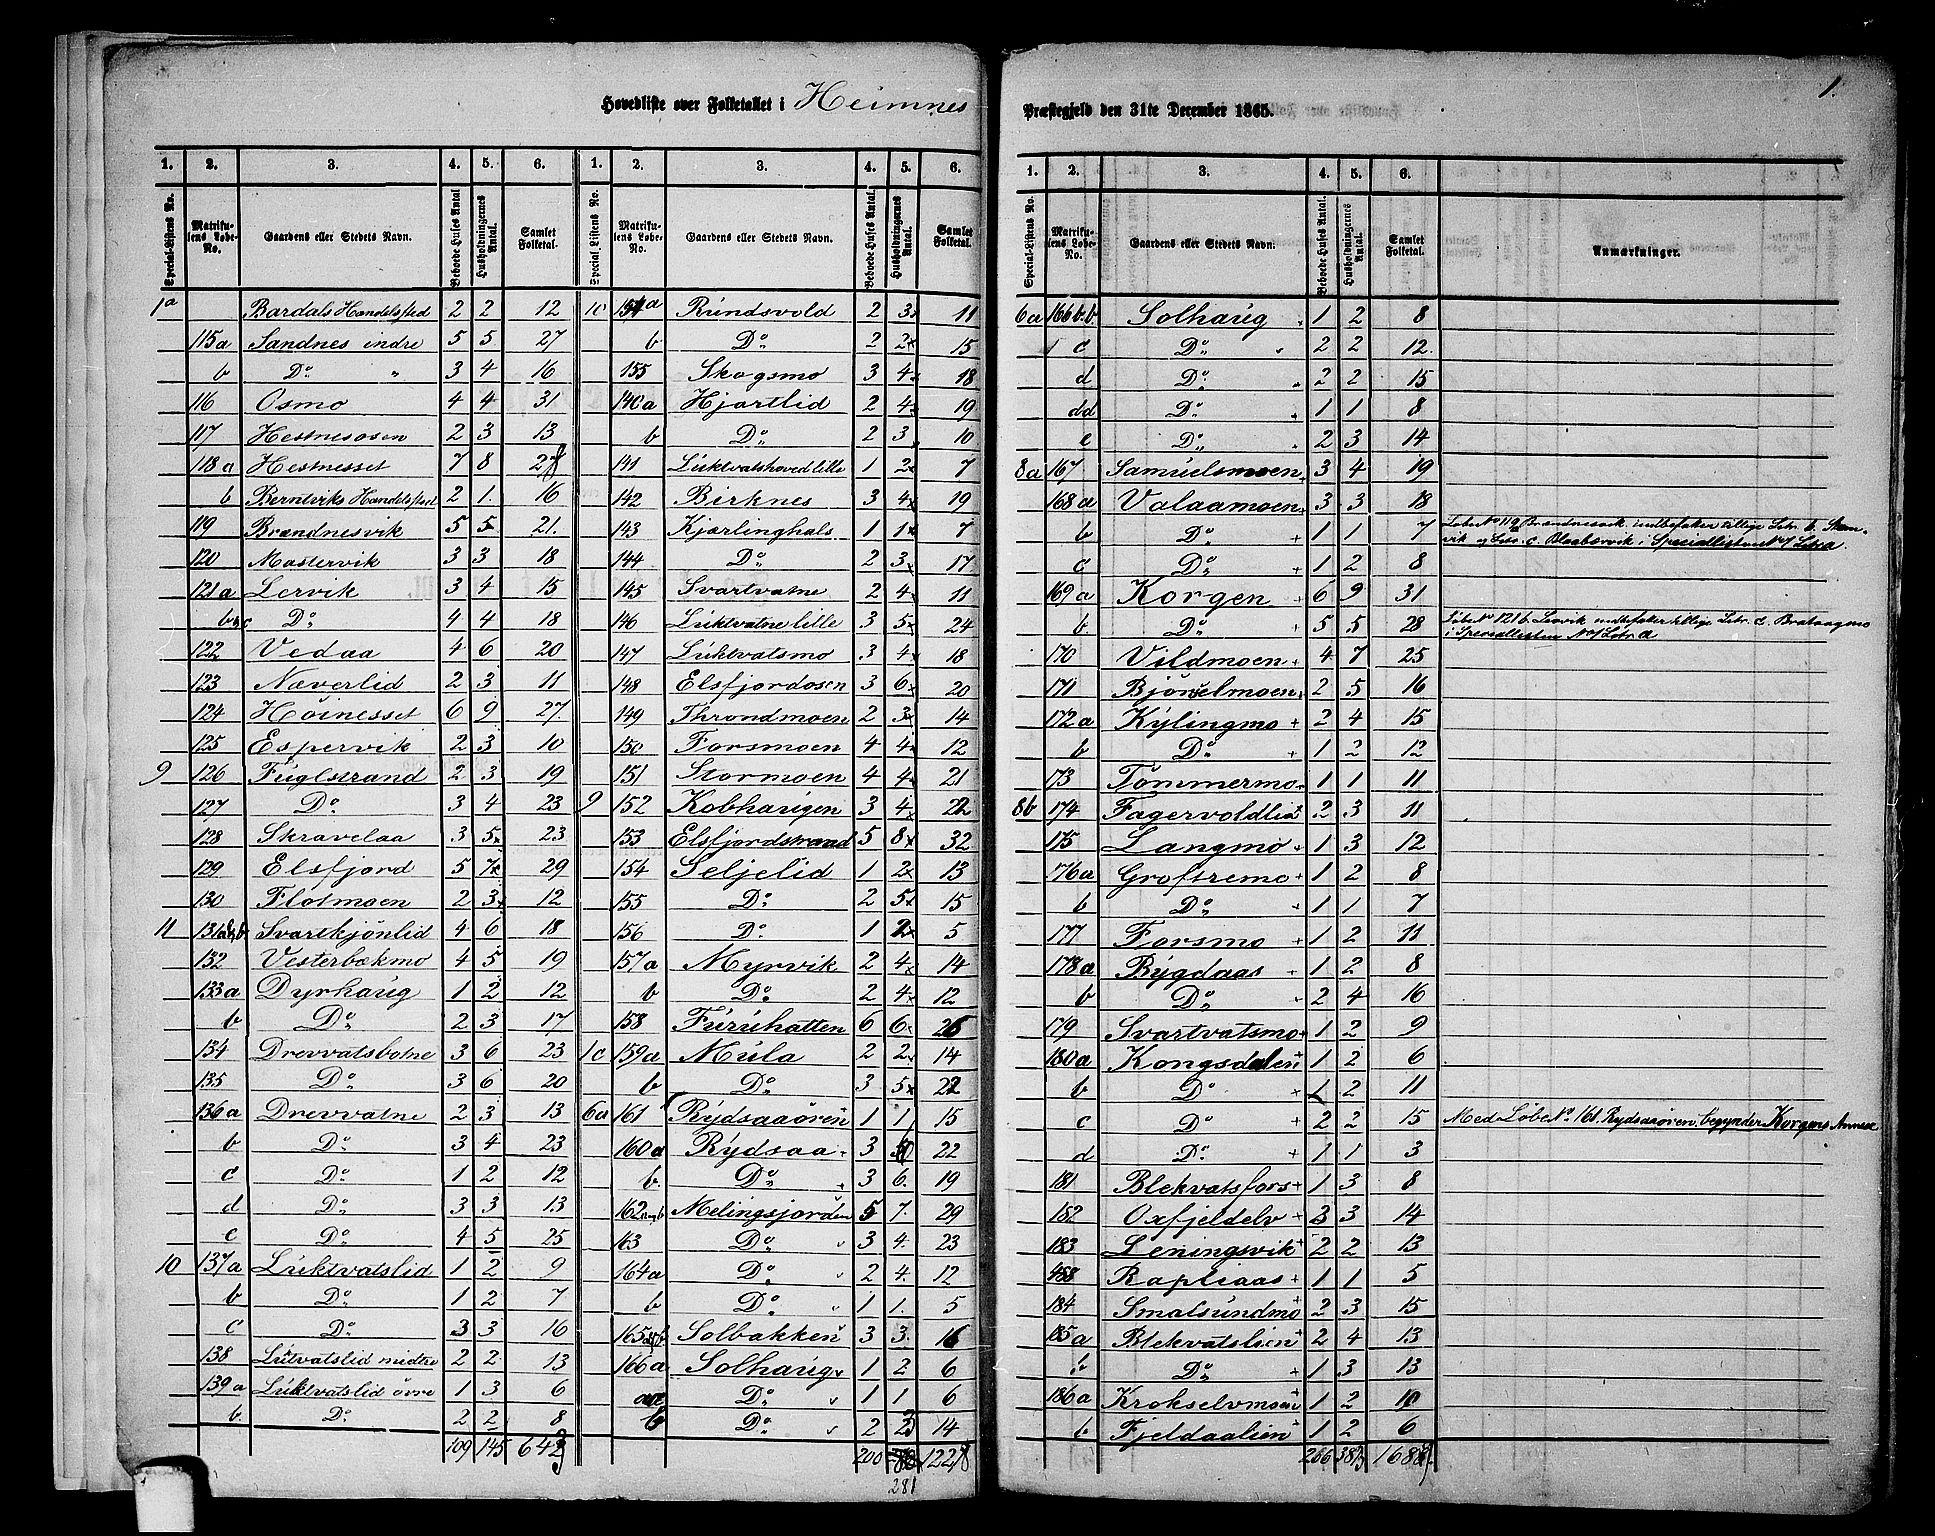 1.
Hovedliste over Folketallet i Heimnes Præstegjeld den 31te December 1865.
1. 2. 3. 4. 5. 6. 1. 2. 3. 4. 5. 6.
Special-Listens No. Matrikulens Løbe-No. Gaardens eller Stedets Navn. Beboede Huses Antal. Husholdningernes Antal. Samlet Folketal. Special-Listens No. Matrikulens Løbe-No. Gaardens eller Stedets Navn. Beboede Huses Antal. Husholdningernes Antal. Samlet Folketal.
1a Bardals Handelssted 2 2 12 1c a Rundsvold 2 3 11
115a Sandnes indre 5 5 27 b Do 2 2 15
b Do " 3 4 16 155 Skogsmo 3 4 18
116 Osmo 4 4 31 140a Hjartlid 2 4 19
117 Hestnesosen 2 3 13 b Do 2 3 10
118a Hestnesset 7 8 141 Luktvatshoved lille 1 2 7
b Handelssted 2 1. 16 142 Birknes 3 4 19
119 Brandnesvik 5 5 21. 143 Kjærlinghals 1 1 7
120 Mastervik 3 3 18 144 Do 2 3 17
121a Lervik 3 4 15 145 Svartvatne 2 4 11
b c Do 4 4 18 146 Luktvatne lille 3 5 24
122 Vedaa 4 6 20 147 Luktvatsmo 3 4 18
123 Næverlid 2 3 11 148 Elsfjordosen 3 6 20
124 Höinesset 6 9 27 149 Throndmoen 2 3 14
125 Espervik 2 3 10 150 Forsmoen 4 4 12
9 126 Fuglstrand 2 3 19 151 Stormoen 4 4 21
127 Do 3 4 23 9 152 Kobhaugen 3 4 22
128 Skravelaa 3 5 23 153 Elsfjordstrand 5 8 32
129 Elsfjord 5 7 29 154 Seljelid 1 2 13
130 Flotmoen 2 3 12 155 Do 2 5 15
11 131a b Svartkjönlid 4 6 18 156 Do 1 2 5
132 Vesterbækmo 4 5 19 157a Myrvik 2 4 14
133a Dyrhaug 1 2 12 b Do 2 4 12
b Do 2 3 17 158 Furuhatten 6 6 26
134 Drevvatsbotne 3 6 23 1c 159a Mula 2 2 14
135 Do 3 6 20 b Do 3 5 22
136a Drevvatne 2 3 13 6a 161 Rydsaaören 1 1 15
b Do 3 4 23 160a Rydsaa 3 22
c Do 1 2 12 b. Do 3 6. 19
d Do 3 3 13 162 Melingsjorden 5 7. 29
e Do 4 5 25 163 Do " 3 4. 23
10 137a Luktvatslid 1 2 9 164a Do " 2 4. 12
b Do 1 2 7 b Do " 1 1. 5
c Do 3 3 16 165 Solbakken 3 3. 16
138 Lutvatslid midtre 2 2 13 166a Solhaug 1 2 6
139a Luktvatslid övre 1 3 6 Do " 1 1 6
b. Do 2 2 8 b Do " 2 3 14
109 145 643 200 281 1228
1. 2. 3. 4. 5. 6.
Special-Listens No. Matrikulens Løbe-No. Gaardens eller Stedets Navn. Beboede Huses Antal. Husholdningernes Antal. Samlet Folketal. Anmærkninger.
6a 166 b.b. Solhaug 1 2 8
c Do " 2 2 12.
d Do " 2 2 15
dd Do 1 1 8
e Do 2 3 14
8a 167 Samuelsmoen 3 4 19
168a Valaamoen 3 3 18
b Do + 1 1 7 Löbe No 119 Brandnesvik indbefatter tillige Litr. b.
vik og Litr. c. i Speciallisten No 1 Litra a
c Do + 1 2 8
169a Korgen + 6 9 31
b. Do + 5 5 28 Löbe No 121 b. Leivik indbefatter tillige Litr. c.
i Speciallisten No 1 Litr. a
170 Vildmoen + 4 7 25
171 Bjönselmoen 2 5 16
172a Kylingmo + 2 4 15
b Do + 1 2 12
173 Tömmermo 1 1 11
8b 174 Fagervoldlia 2 3 11
175 Langmo + 1 3 12
176a Groftremo + 1 2 8
b Do + 1 1 7
177 Forsmo + 1 2 11
178a Bygdaas + 1 2 8
b Do + 2 4 16
179 Svartvatsmo + 1 2 9
180a Kongsdalen + 1 2 6
b Do + 1 2 11
c Do + 2 2 15 Med Löbe No. 161 Rydsaaören begynder Korgens Annex
d Do + 1 1 3
181 Blekvatsfors + 1 3 8
182 Oxfjeldelv + 3 3 14
183 Leningsvik + 2 2 13
Rapliaas + 1 1 5
184 Smalsundmo 2 3 15
185a Blekvatslien + 2 4 13
b Do + 1 3 13
186a Krokselvmoen 1 2 10
b Fjeldaalien 1 2 6
266 383